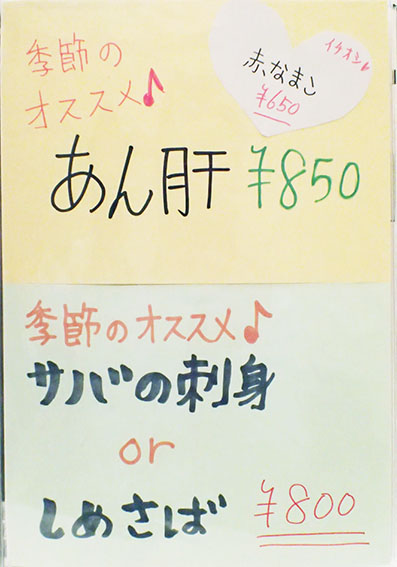 季節の
オススメ♪
イチオシ♥
赤なまこ
¥650
あん肝 ¥850
季節のオススメ♪
サバの刺身
or
しめさば ¥800